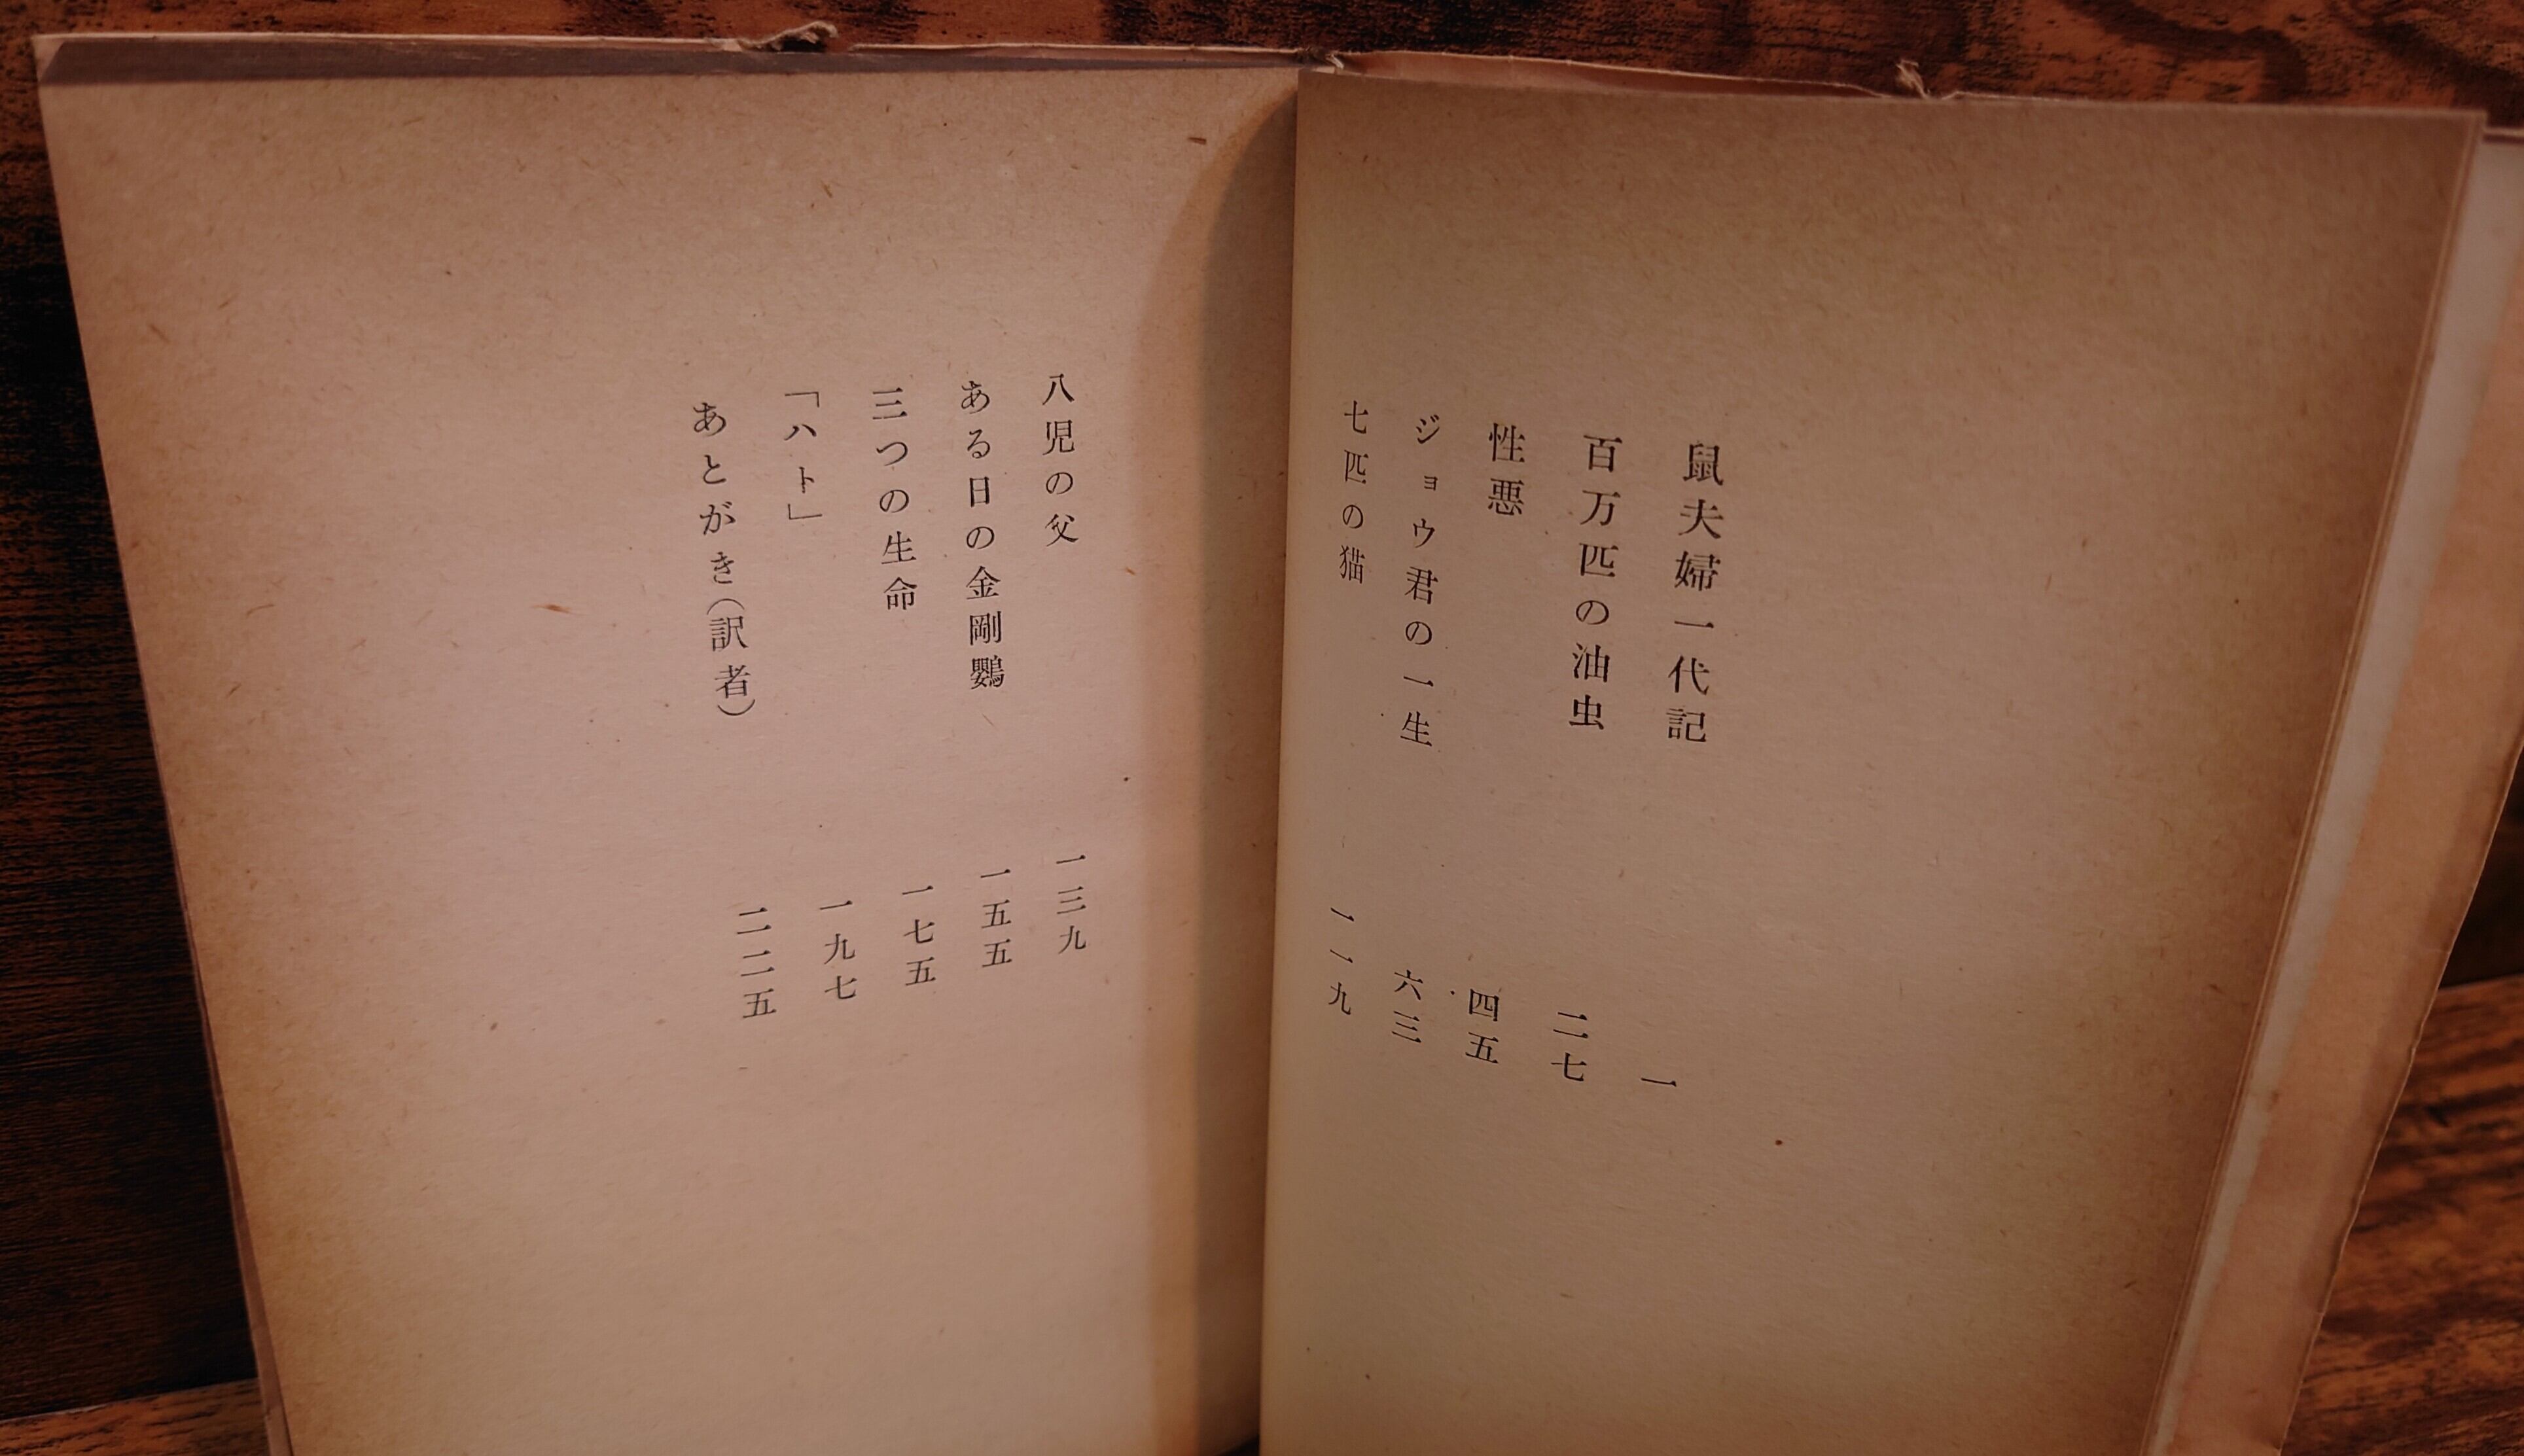 鼠夫婦一代記 一
百万匹の油虫 二七
性悪 四五
ジョウ君の一生 六三
七匹の猫 一一九
八児の父 一三九
ある日の金剛鸚 一五五
三つの生命 一七五
「ハト」 一九七
あとがき（訳者） 二二五